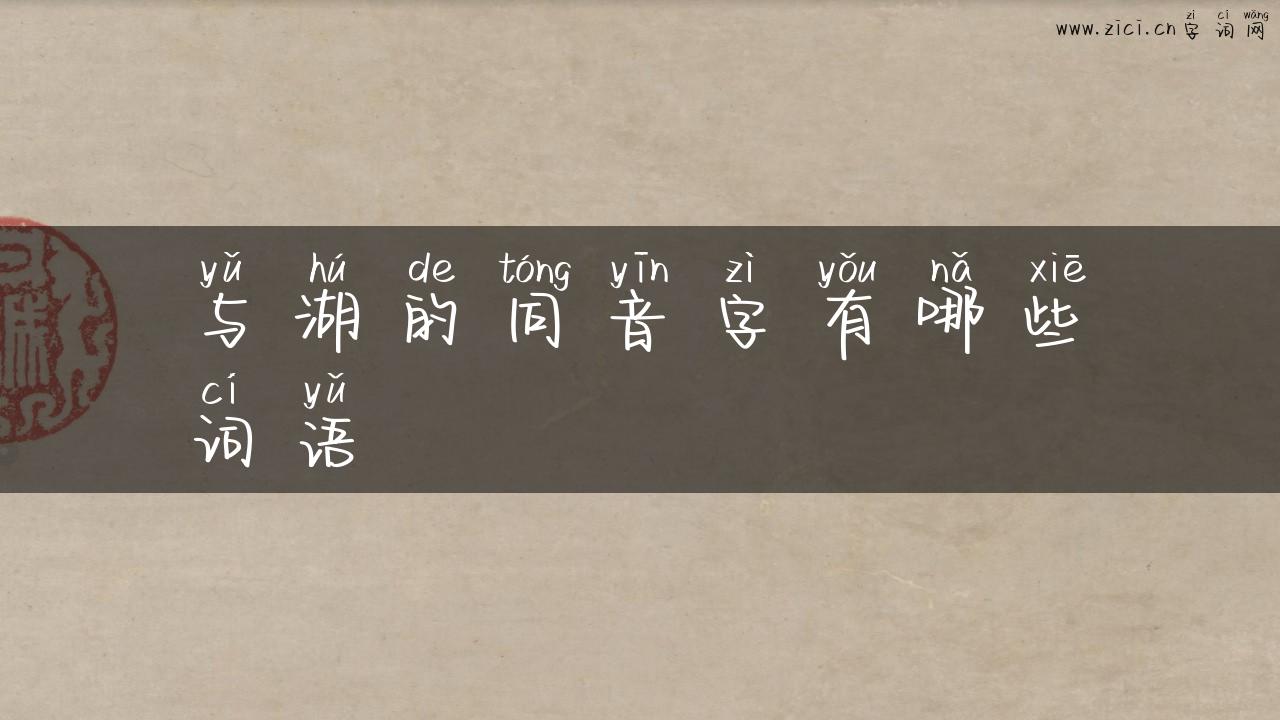 zì cí wǎng
www.zici.cn 字词网
yǔ hú de tóng yīn zì yǒu nǎ xiē
与湖的同音字有哪些
cí yǔ
词语